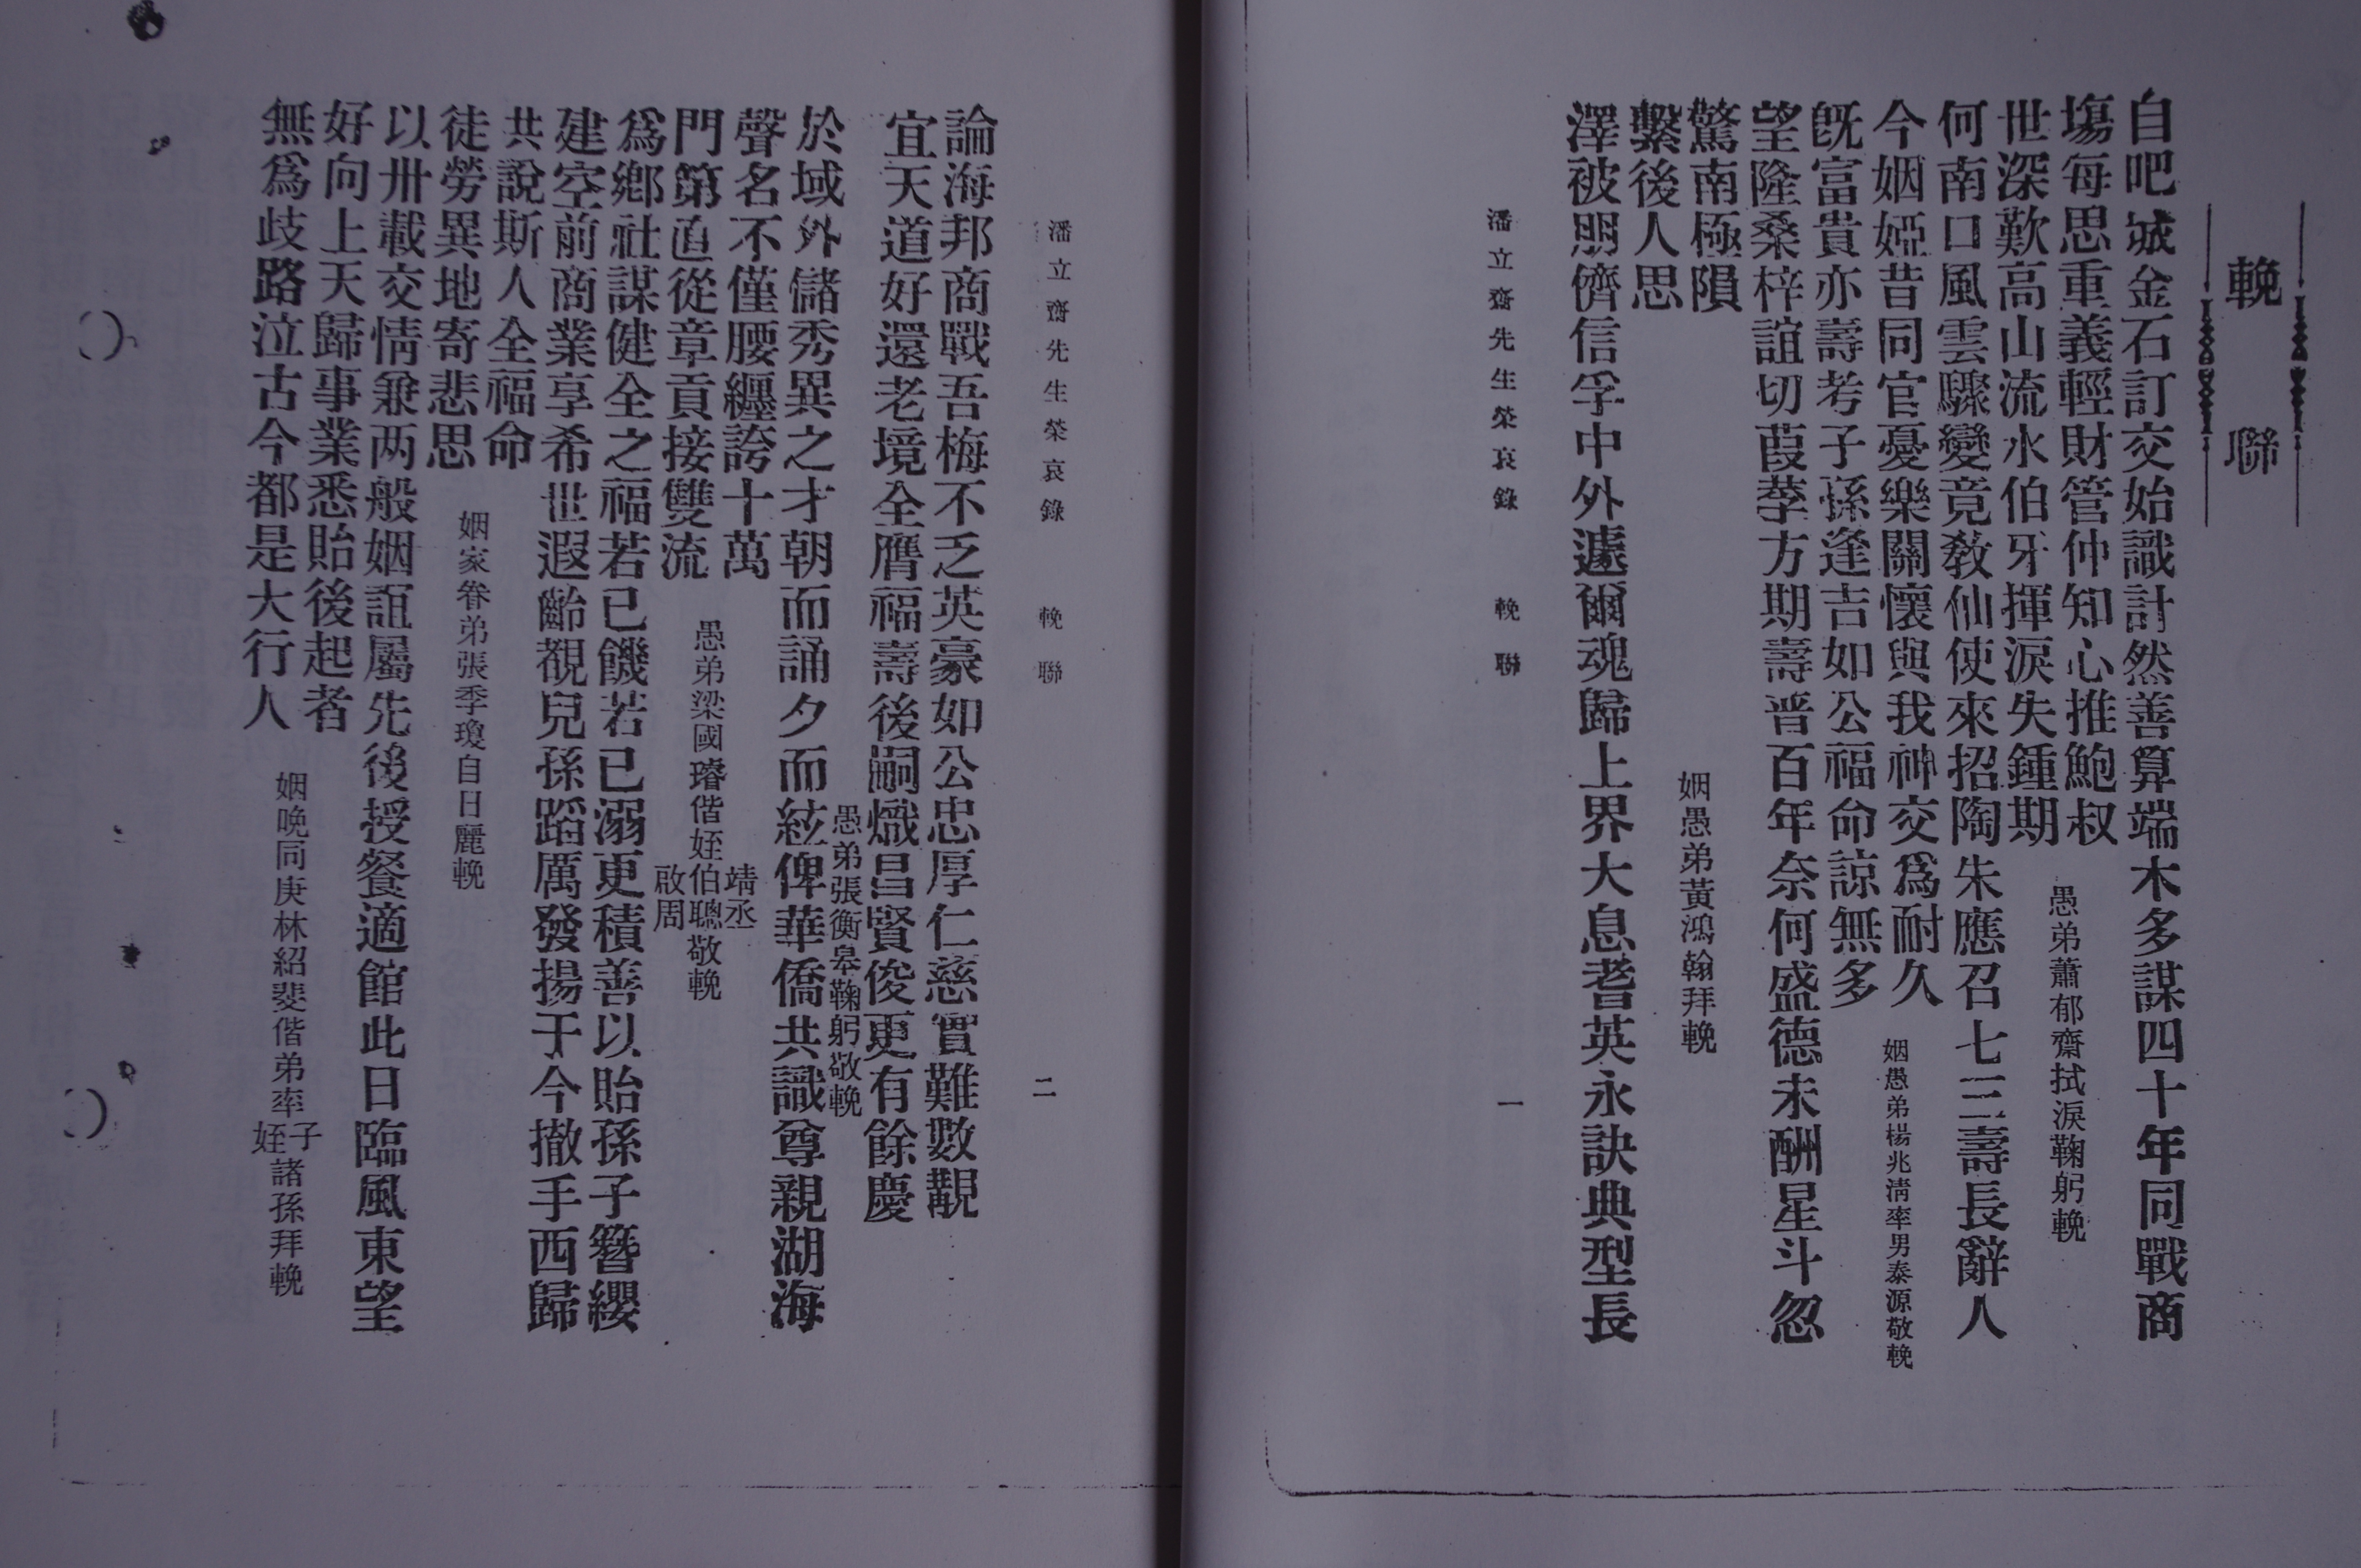 輓聯
自吧城金石訂交始識計然善算端木多謀四十年同戰商
塲每思重義輕財管仲知心推鮑叔
世深歎高山流水伯牙揮淚失鍾期
愚弟蕭郁齋拭淚鞠躬輓
何南口風雲驟變竟教仙使來招陶朱應召七三壽長辭人
今姻婭昔同官憂樂關懷與我神交爲耐久
既富貴亦壽考子孫逢吉如公福命諒無多
姻愚弟楊兆淸率男泰源敬輓
望隆桑梓誼切葭莩方期壽晋百年奈何盛德未酬星斗忽
驚南極隕
繫後人思
澤被朋儕信孚中外遽爾魂歸上界大息耆英永訣典型長
姻愚弟黃鴻翰拜輓
潘立齋先生榮哀錄　輓聯　一
潘立齋先生榮哀錄　輓聯　二
論海邦商戰吾梅不乏英豪如公忠厚仁慈實難數覯
宜天道好還老境全膺福壽後嗣熾昌賢俊更有餘慶
愚弟張衡皋鞠躬敬輓
於域外儲秀異之才朝而誦夕而絃俾華僑共識尊親湖海
聲名不僅腰纏誇十萬
門第直從章貢接雙流
爲鄕社謀健全之福若已饑若已溺更積善以貽孫子簪纓
愚弟梁國璿偕姪靖丞伯聰啟周敬輓
建空前商業享希世遐齡覩兒孫蹈厲發揚于今撤手西歸
共說斯人全福命
徒勞異地寄悲思
姻家眷弟張季瓊自日麗輓
以卅載交情兼两般姻誼屬先後授餐適館此日臨風東望
好向上天歸事業悉貽後起者
無爲歧路泣古今都是大行人
姻晚同庚林紹斐偕弟率子姪諸孫拜輓